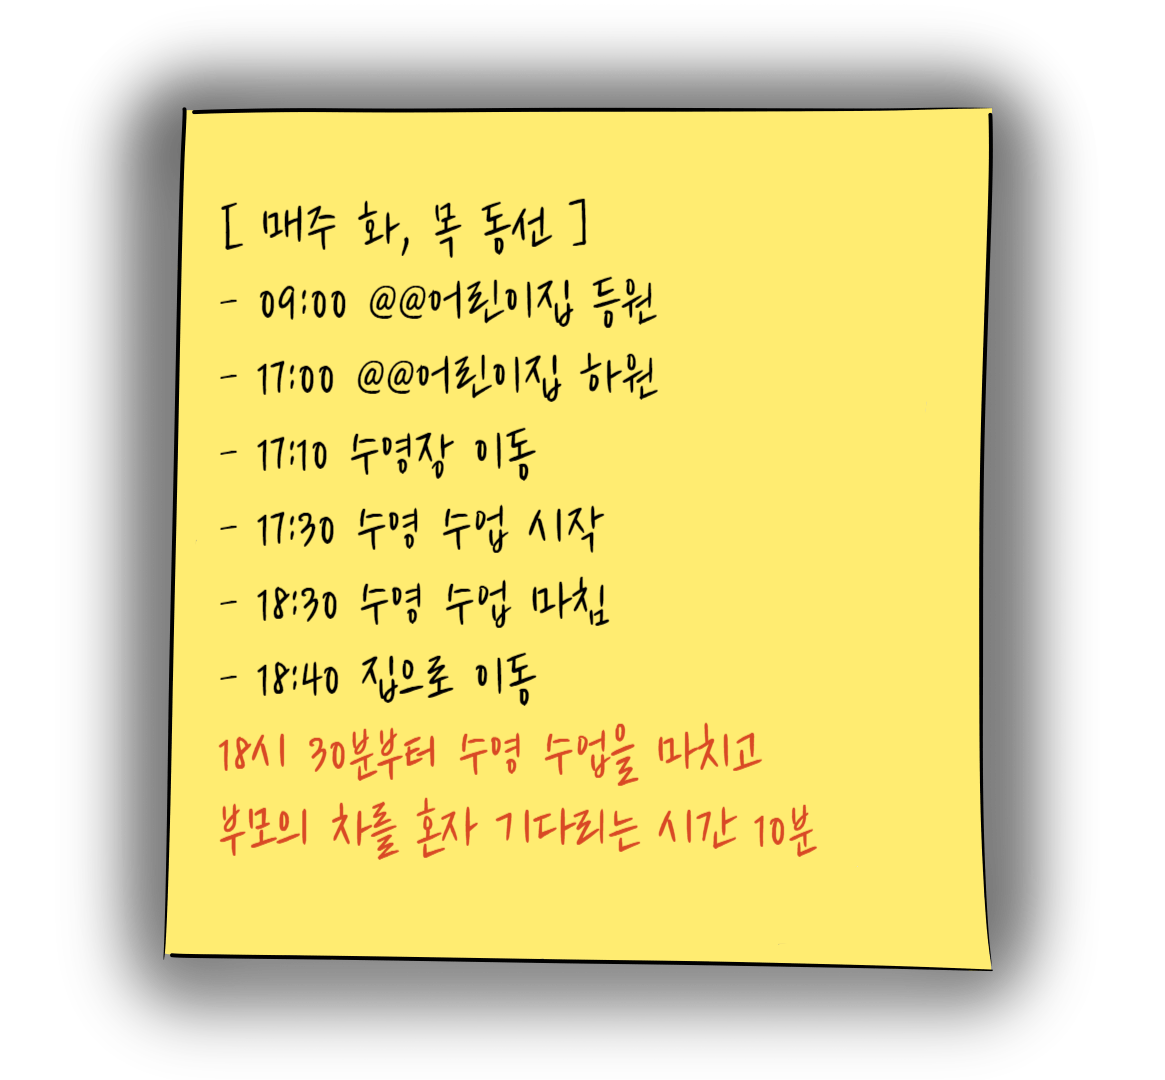 [ 매주 화, 목 동선 ]
- 09:00 @@어린이집 등원
- 17:00 @@어린이집 하원
- 17:10 수영장 이동
- 17:30 수영 수업 시작
- 18:30 수영 수업 마침
- 18:40 집으로 이동
18시 30분부터 수영 수업을 마치고
부모의 차를 혼자 기다리는 시간 10분